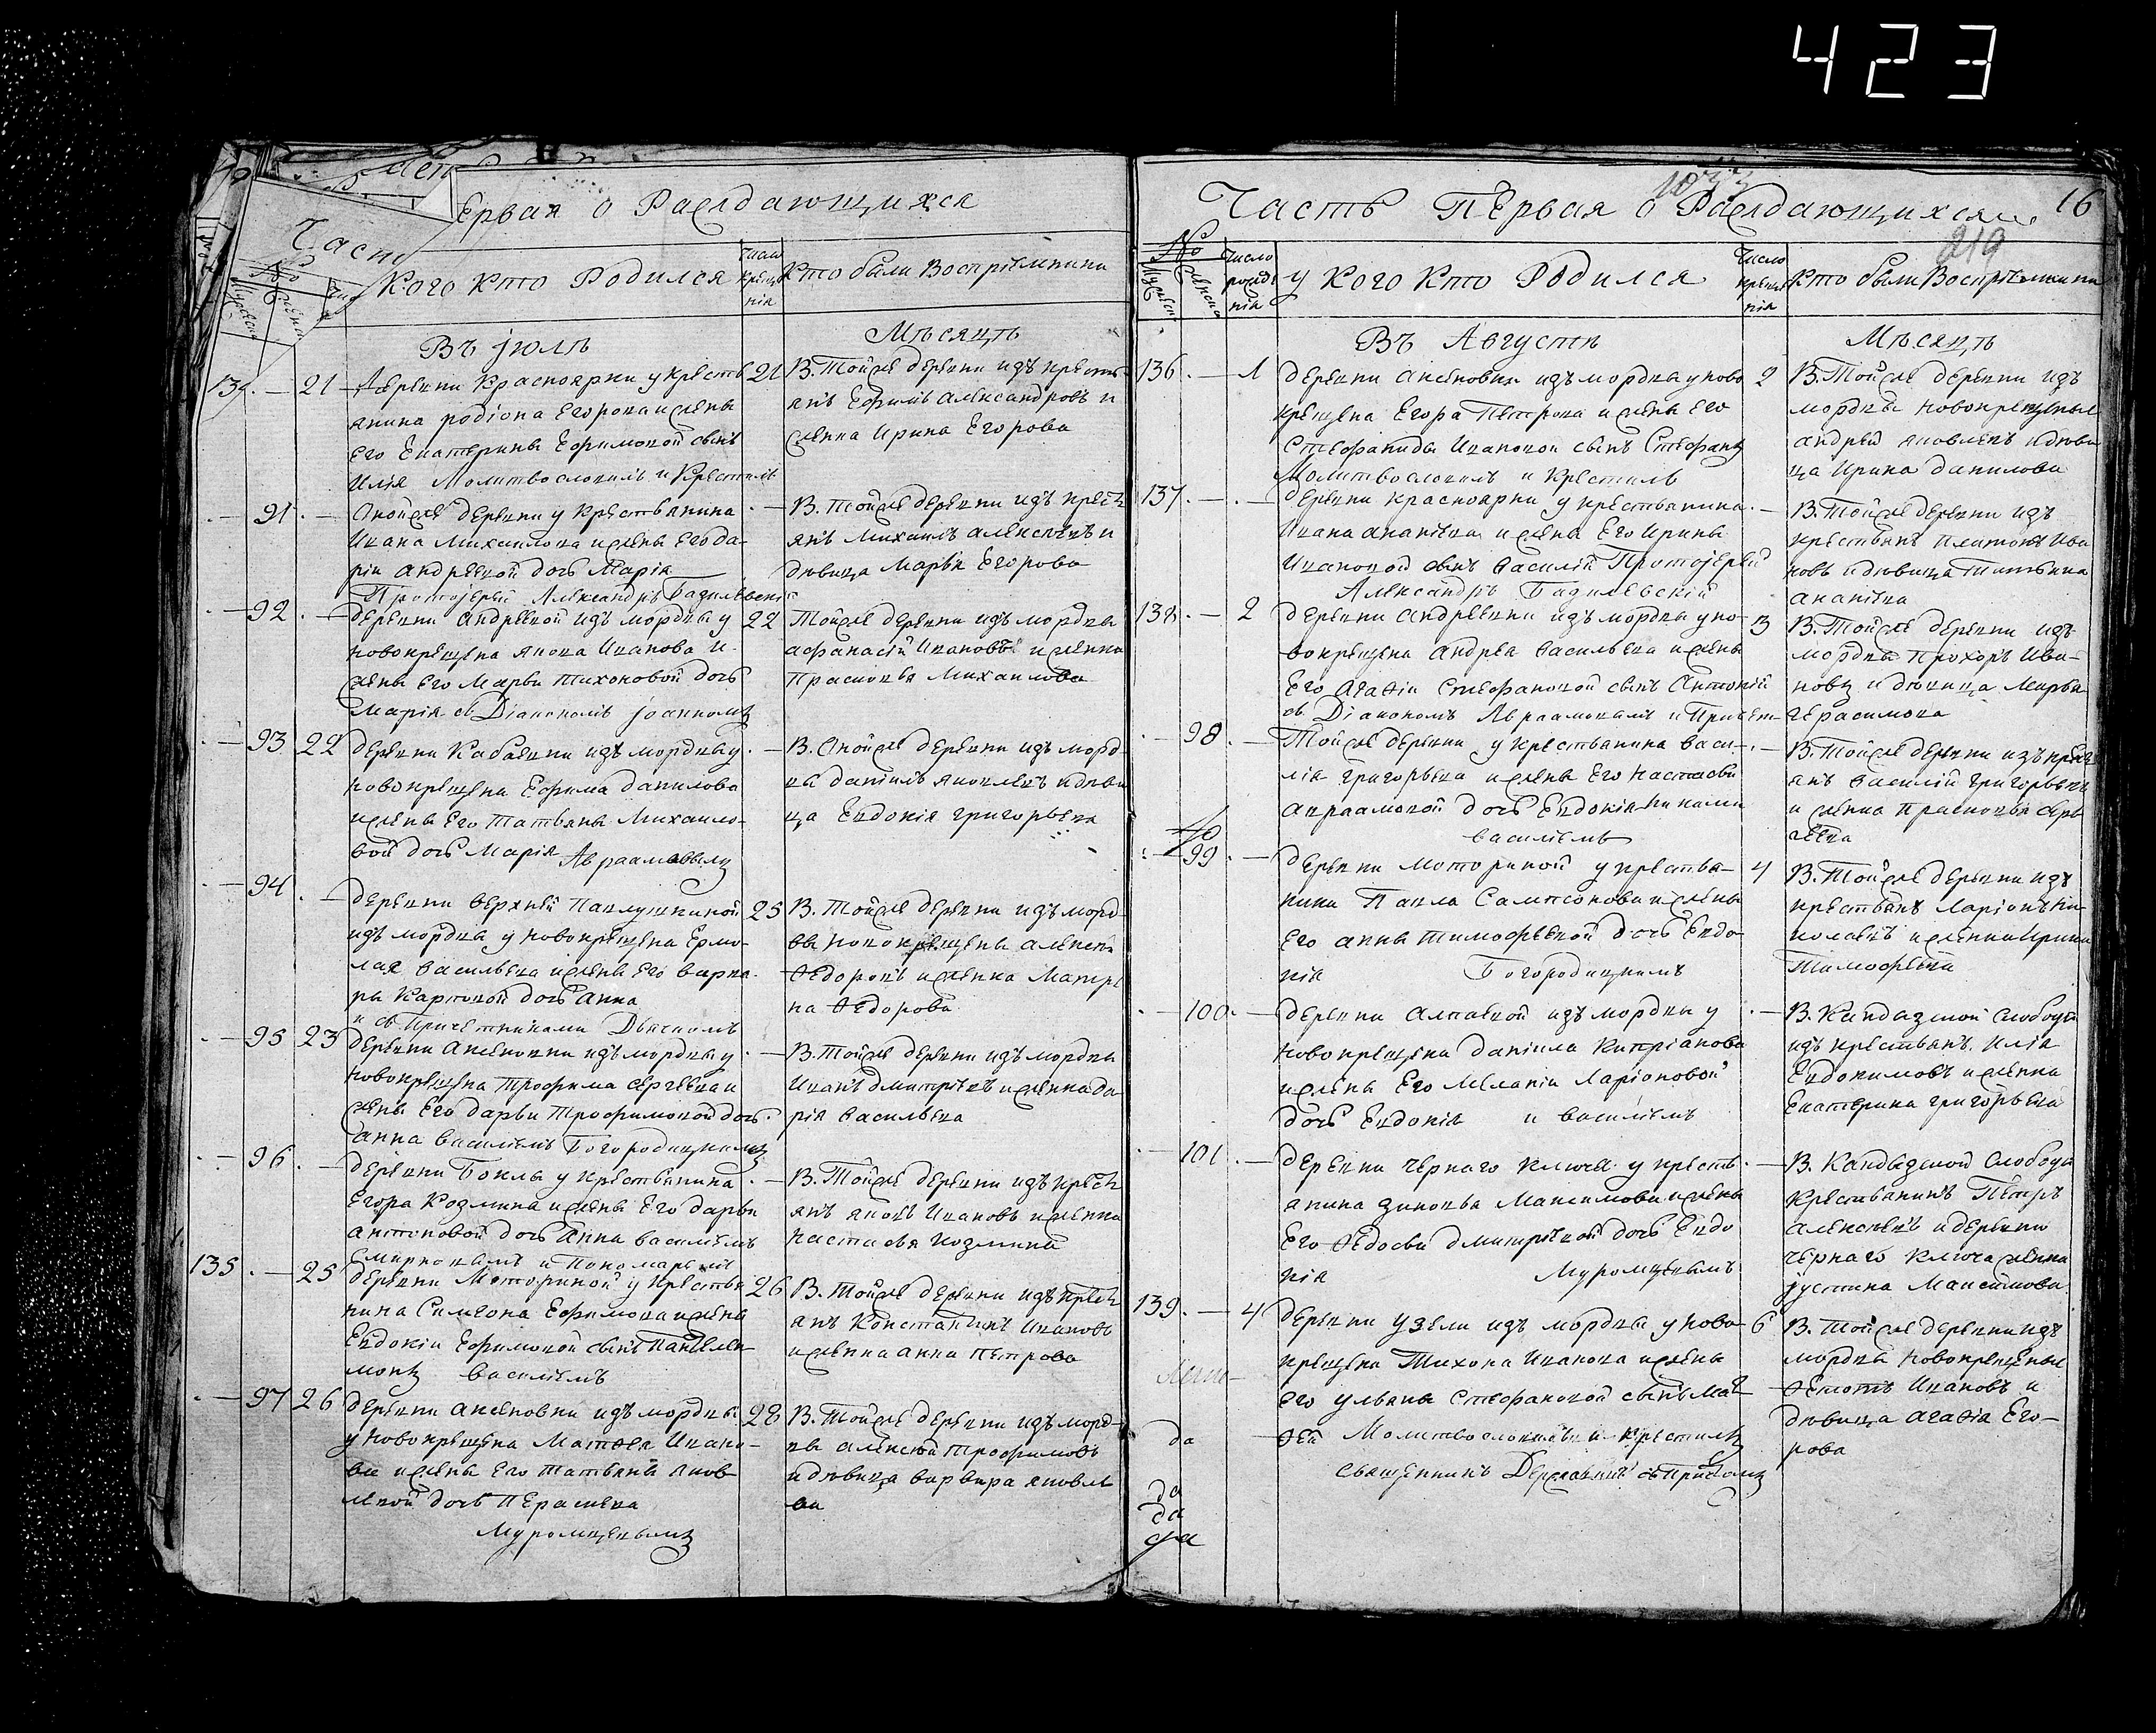 423
Часть Первая о Раждающихся
№
кого кто Родился
число крещенія
Кто были Воспріемники
Въ іюлѣ
Мѣсяцѣ
21
деревни Красноярки у кресть
21
янина родіона Егорова и жены
его Екатерины Ефимовой сынъ
Илія Молитвословилъ и Крестилъ
В. Тойже деревни изъ кресть
янъ Ефимъ Александровъ и
женка Ирина Егорова
91
Оной же деревни у Крестьянина
Ивана Михаилова и жены его да-
ріи Андреевой дочь Марія
Протоіерей Александръ Базилевскій
В. тойже деревни изъ крест
янъ Михаилъ Алексѣевъ и
дѣвица Марья Егорова
92
деревни Андреевой изъ мордвы у
22
новокрещена Якова Иванова и
жены его Марьи Тихоновой дочь
Марія съ Діакономъ Іоанномъ
Тойже деревни изъ мордвы
афанасій Ивановъ и женка
Прасковья Михаилова
93
22
деревни Кабаевки изъ мордвы у
новокрещена Ефима данилова
и жены его Татьяны Михаило-
вой дочь Марія Авраамовымъ
В. Оной же деревни изъ морд
вы даніилъ яковлевъ и дѣви
ца Евдокія григорьева
94
деревни верхней Павлушкиной
25
изъ мордвы у новокрещена Ермо-
лая васильева и жены его варва-
ры Карповой дочь Анна
и съ Причетниками Дьячкомъ
В. Тойже деревни изъ морд
вы новокрещены алексѣй
Ѳедоровъ и женка Матре
на Ѳедорова
95
23
деревни Аксеновки изъ мордвы у
новокрещена Трофима сергеева и
жены Его дарьи Трофимовой дочь
анна василіемъ Богородицкимъ
В. Тойже деревни изъ мордвы
Иванъ дмитріевъ и женка да-
рія васильева
96
деревни Боклы у крестьянина
Егора Козмина и жены Его дарьи
антоновой дочь Анна василіемъ
Смирновымъ и Пономаремъ
В. Тойже деревни изъ крест
янъ яковъ Ивановъ и женка
настасья козмина
135
25
деревни Моториной у крестья
26
нина Симеона Ефимова и жены
Евдокіи Ефимовой сынъ Пантелеи-
монъ василіемъ
В. тойже деревни изъ крест
янъ Константинъ Ивановъ
и женка анна петрова
97
26
деревни аксеновки изъ мордвы
28
у новокрещена Матвея Ивано-
ва и жены Его татьяны яков-
левой дочь Параскева
Муромцевымъ
В. Тойже деревни изъ морд
вы алексей трофимовъ
и дѣвица варвара яковле
ва
Часть Первая о Раждающихся
16
219
№
число рожденія
у кого кто Родился
число крещенія
кто были Воспріемники
Въ Августѣ
Мѣсяцѣ
136
1
деревни аксеновки изъ мордвы у ново
2
крещена Егора Петрова и жены Его
Стефаниды Ивановой сынъ Стефанъ
Молитвословилъ и Крестилъ
В. Тойже деревни изъ
мордвы новокрещеные
андрей яковлевъ и дѣви
ца Ирина данилова
137
деревни красноярки у крестьянина
Ивана ананіева и жены Его Ирины
Ивановой сынъ василій Протоіерей
Александръ Базилевскій
В. Тойже деревни изъ
крестьянъ Платонъ Ива
новъ и дѣвица Татьяна
ананіева
138
2
деревни андреевки изъ мордвы у но-
3
вокрещена андрея васильева и жены
Его Агаѳіи Стефановой сынъ Антоній
съ Діакономъ Авраамовымъ и Причет-
В. Тойже деревни изъ
мордвы Прохоръ Ива-
новъ и дѣвица Марья
герасимова
98
Тойже деревни у крестьянина васи-
лія григорьева и жены Его настасьи
авраамовой дочь Евдокія никами
василіемъ
В. Тойже деревни изъ крест
янъ василій григорьевъ
и женка прасковья сер
геева
99
деревни Моториной у крестья-
4
нина Павла Сампсонова и жены
Его анны тимофеевой дочь Евдо-
кія Богородицкимъ
В. Тойже деревни изъ
крестьянъ Ларіонъ Ни-
колаевъ и женка Ирина
Тимофеева
100
деревни Алпаевой изъ мордвы у
новокрещена даніила Кипріанова
и жены Его Меланіи Ларіоновой
дочь Евдокія и василіемъ
В. Кандызской слободы
изъ крестьянъ Илія
Евдокимовъ и женка
Екатерина григорьева
101
деревни чернаго ключа у кресть
янина зиновья Максимова и жены
Его Ѳедосьи дмитріевой дочь Евдо
кія Муромцевымъ
В. Кандызской слободы
крестьянинъ Петръ
алексѣевъ и деревни
чернаго ключа женка
устина Максимова
139
4
деревни узели изъ мордвы у ново-
6
крещена Тихона Иванова и жены
его ульяны Стефановой сынъ Мат-
ѳей Молитвословилъ и крестилъ
священникъ Державинъ съ причтомъ
В. Тойже деревни изъ
мордвы новокрещеные
Ѳедотъ Ивановъ и
дѣвица агаѳія Его-
рова
да
да
да